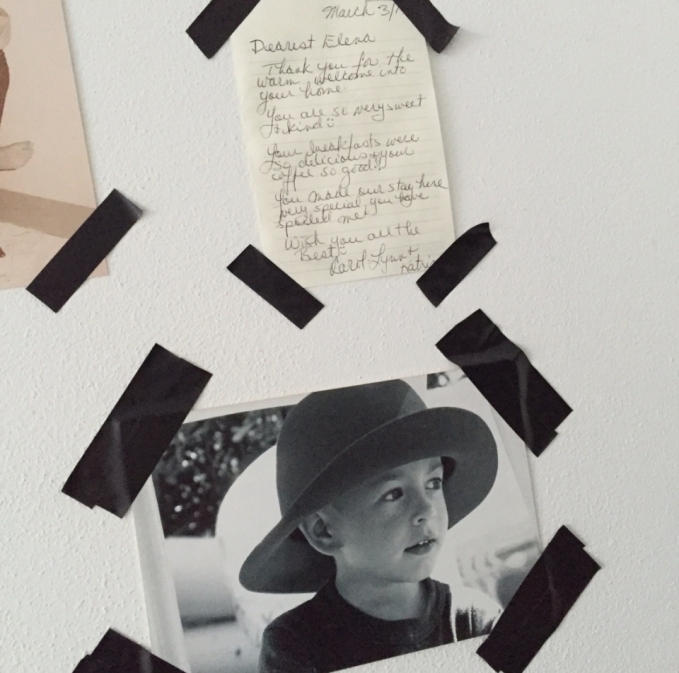 March 3/
Dearest Elena
Thank you for the
warm welcome into
your home.
You are so very sweet
& kind :)
Your breakfasts were
so delicious & your
coffee so good!!
You made our stay here
very special, you have
spoiled me!
Wish you all the
Best!
Carol-Lynn +